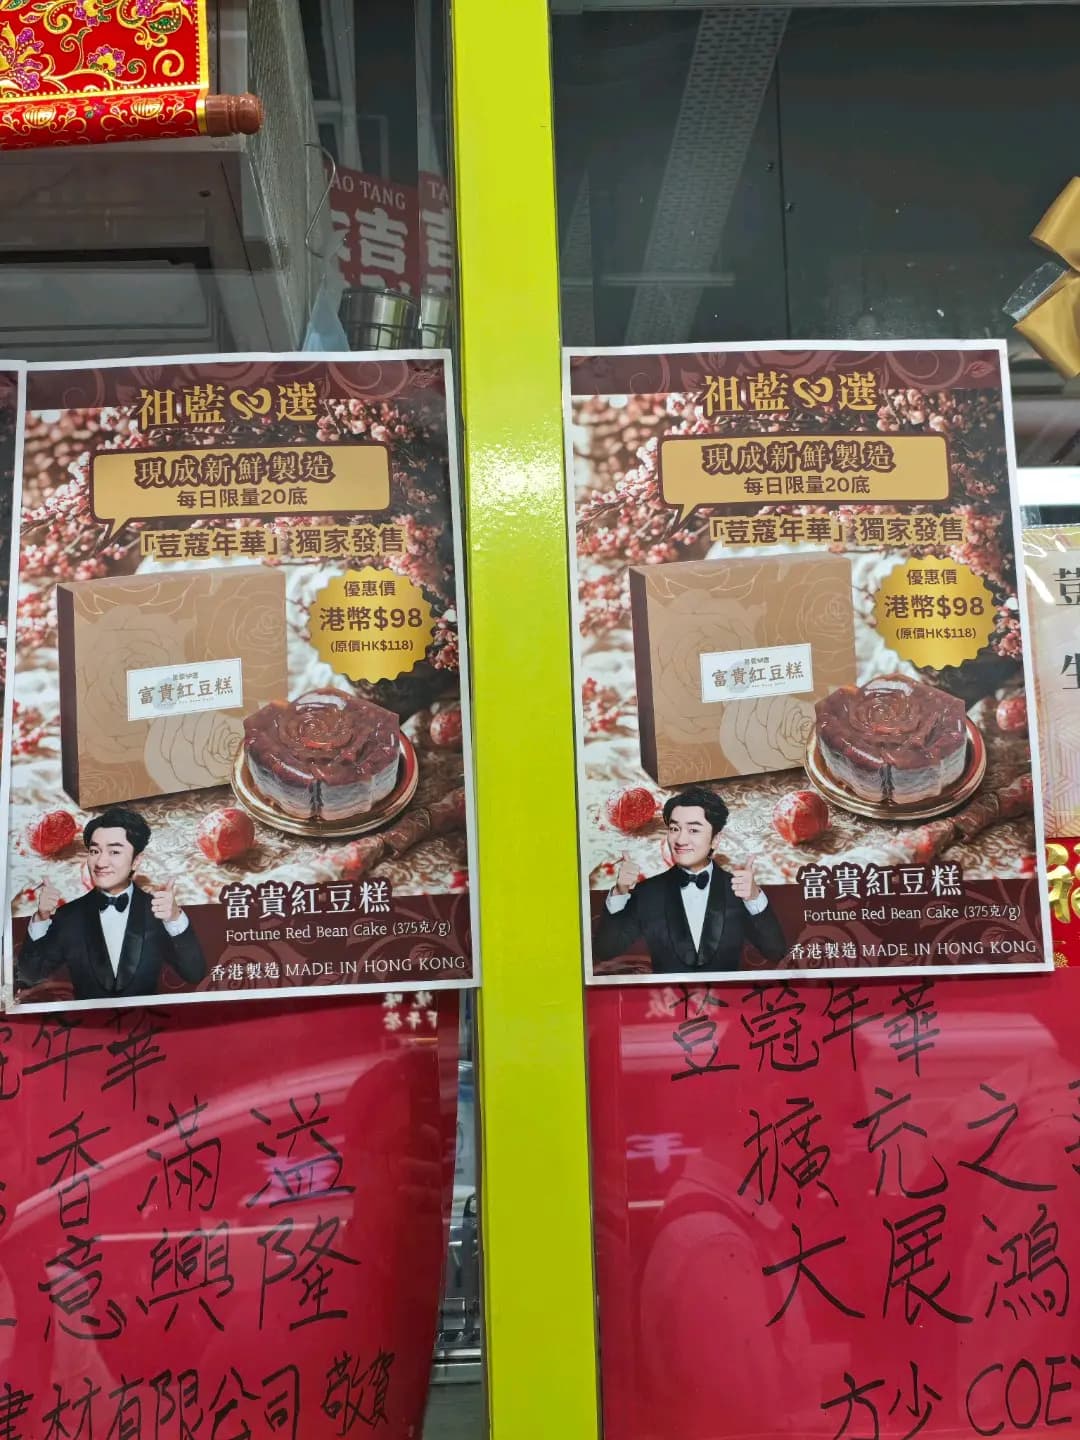 AO TANG
吉
祖藍選
現成新鮮製造
每日限量20底
「荳蔻年華」獨家發售
優惠價
港幣$98
(原價HK$118)
富貴紅豆糕
富貴紅豆糕
Fortune Red Bean Cake (375克/g)
香港製造 MADE IN HONG KONG
祖藍選
現成新鮮製造
每日限量20底
「荳蔻年華」獨家發售
優惠價
港幣$98
(原價HK$118)
富貴紅豆糕
富貴紅豆糕
Fortune Red Bean Cake (375克/g)
香港製造 MADE IN HONG KONG
年華
香滿溢
意興隆
建材有限公司 敬賀
荳蔻年華
擴充之
大展鴻
方少 COE